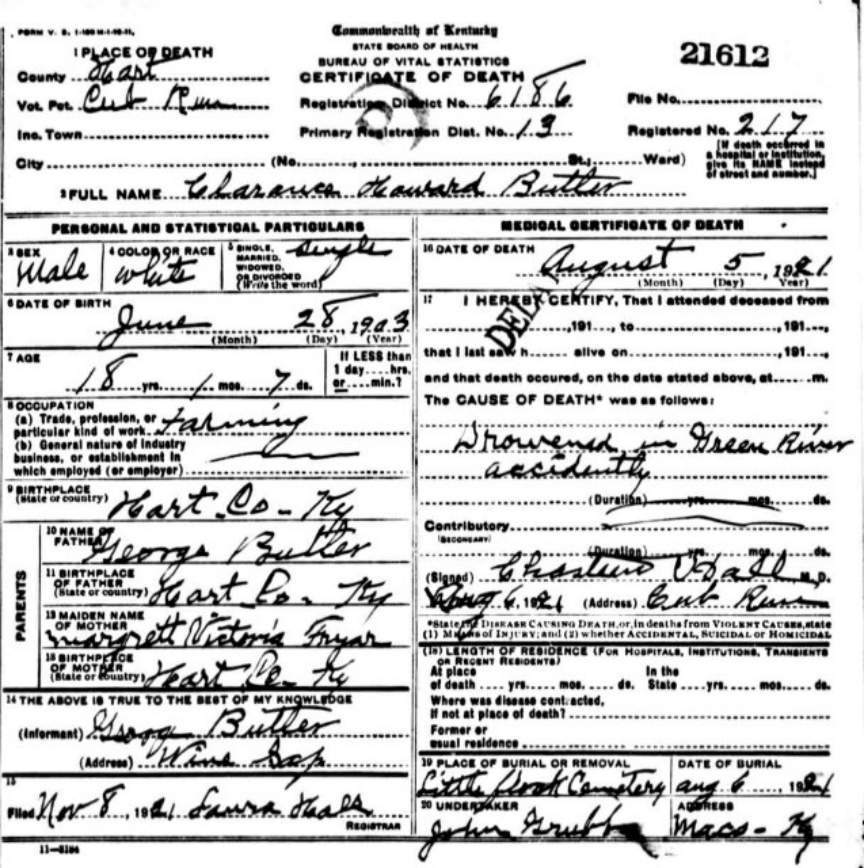 FORM V. S.
Commonwealth of Kentucky
STATE BOARD OF HEALTH
BUREAU OF VITAL STATISTICS
CERTIFICATE OF DEATH
21612
1 PLACE OF DEATH
County Hart
Vot. Pct. Cub Run
Inc. Town
City (No. St., Ward)
Registration District No. 6186
Primary Registration Dist. No. 13
File No.
Registered No. 217
[If death occurred in
a hospital or institution,
give its NAME instead
of street and number.]
2 FULL NAME Clarance Howard Butler
PERSONAL AND STATISTICAL PARTICULARS
3 SEX
Male
4 COLOR OR RACE
White
5 SINGLE,
MARRIED,
WIDOWED,
OR DIVORCED
(Write the word)
Single
6 DATE OF BIRTH
June 28, 1903
(Month) (Day) (Year)
7 AGE
18 yrs. 1 mos. 7 ds.
If LESS than
1 day hrs.
or min.?
8 OCCUPATION
(a) Trade, profession, or
particular kind of work Farming
(b) General nature of industry
business, or establishment in
which employed (or employer)
9 BIRTHPLACE
(State or country) Hart Co - Ky
PARENTS
10 NAME OF
FATHER George Butler
11 BIRTHPLACE
OF FATHER
(State or country) Hart Co. Ky
12 MAIDEN NAME
OF MOTHER
Margrett Victoria Fryar
13 BIRTHPLACE
OF MOTHER
(State or country) Hart Co - Ky
14 THE ABOVE IS TRUE TO THE BEST OF MY KNOWLEDGE
(Informant) Butler
(Address) Wine Sap
15
Filed Nov 8, 1921 Laura
REGISTRAR
11-3184
MEDICAL CERTIFICATE OF DEATH
16 DATE OF DEATH
August 5, 1921
(Month) (Day) Year)
17 I HEREBY CERTIFY, That I attended deceased from
DELA
,191 , to ,191 ,
that I last saw h alive on ,191 ,
and that death occured, on the date stated above, at m.
The CAUSE OF DEATH* was as follows:
Drowened in Green River
accidently
(Duration) yrs. mos. ds.
Contributory
(SECONDARY)
(Duration) yrs. mos. ds.
(Signed) Hall M. D.
Aug 6, 1921 (Address) Cub Run
*State the DISEASE CAUSING DEATH, or, in deaths from VIOLENT CAUSES, state
(1) MEANS OF INJURY; and (2) whether ACCIDENTAL, SUICIDAL or HOMICIDAL
(18) LENGTH OF RESIDENCE (FOR HOSPITALS, INSTITUTIONS, TRANSIENTS
OR RECENT RESIDENTS)
At place In the
of death yrs. mos. ds. State yrs. mos. ds.
Where was disease contracted,
If not at place of death?
Former or
usual residence
19 PLACE OF BURIAL OR REMOVAL
Little flock Cemetery
DATE OF BURIAL
aug 6, 1921
20 UNDERTAKER
John Grubbs
ADDRESS
Macs - Ky